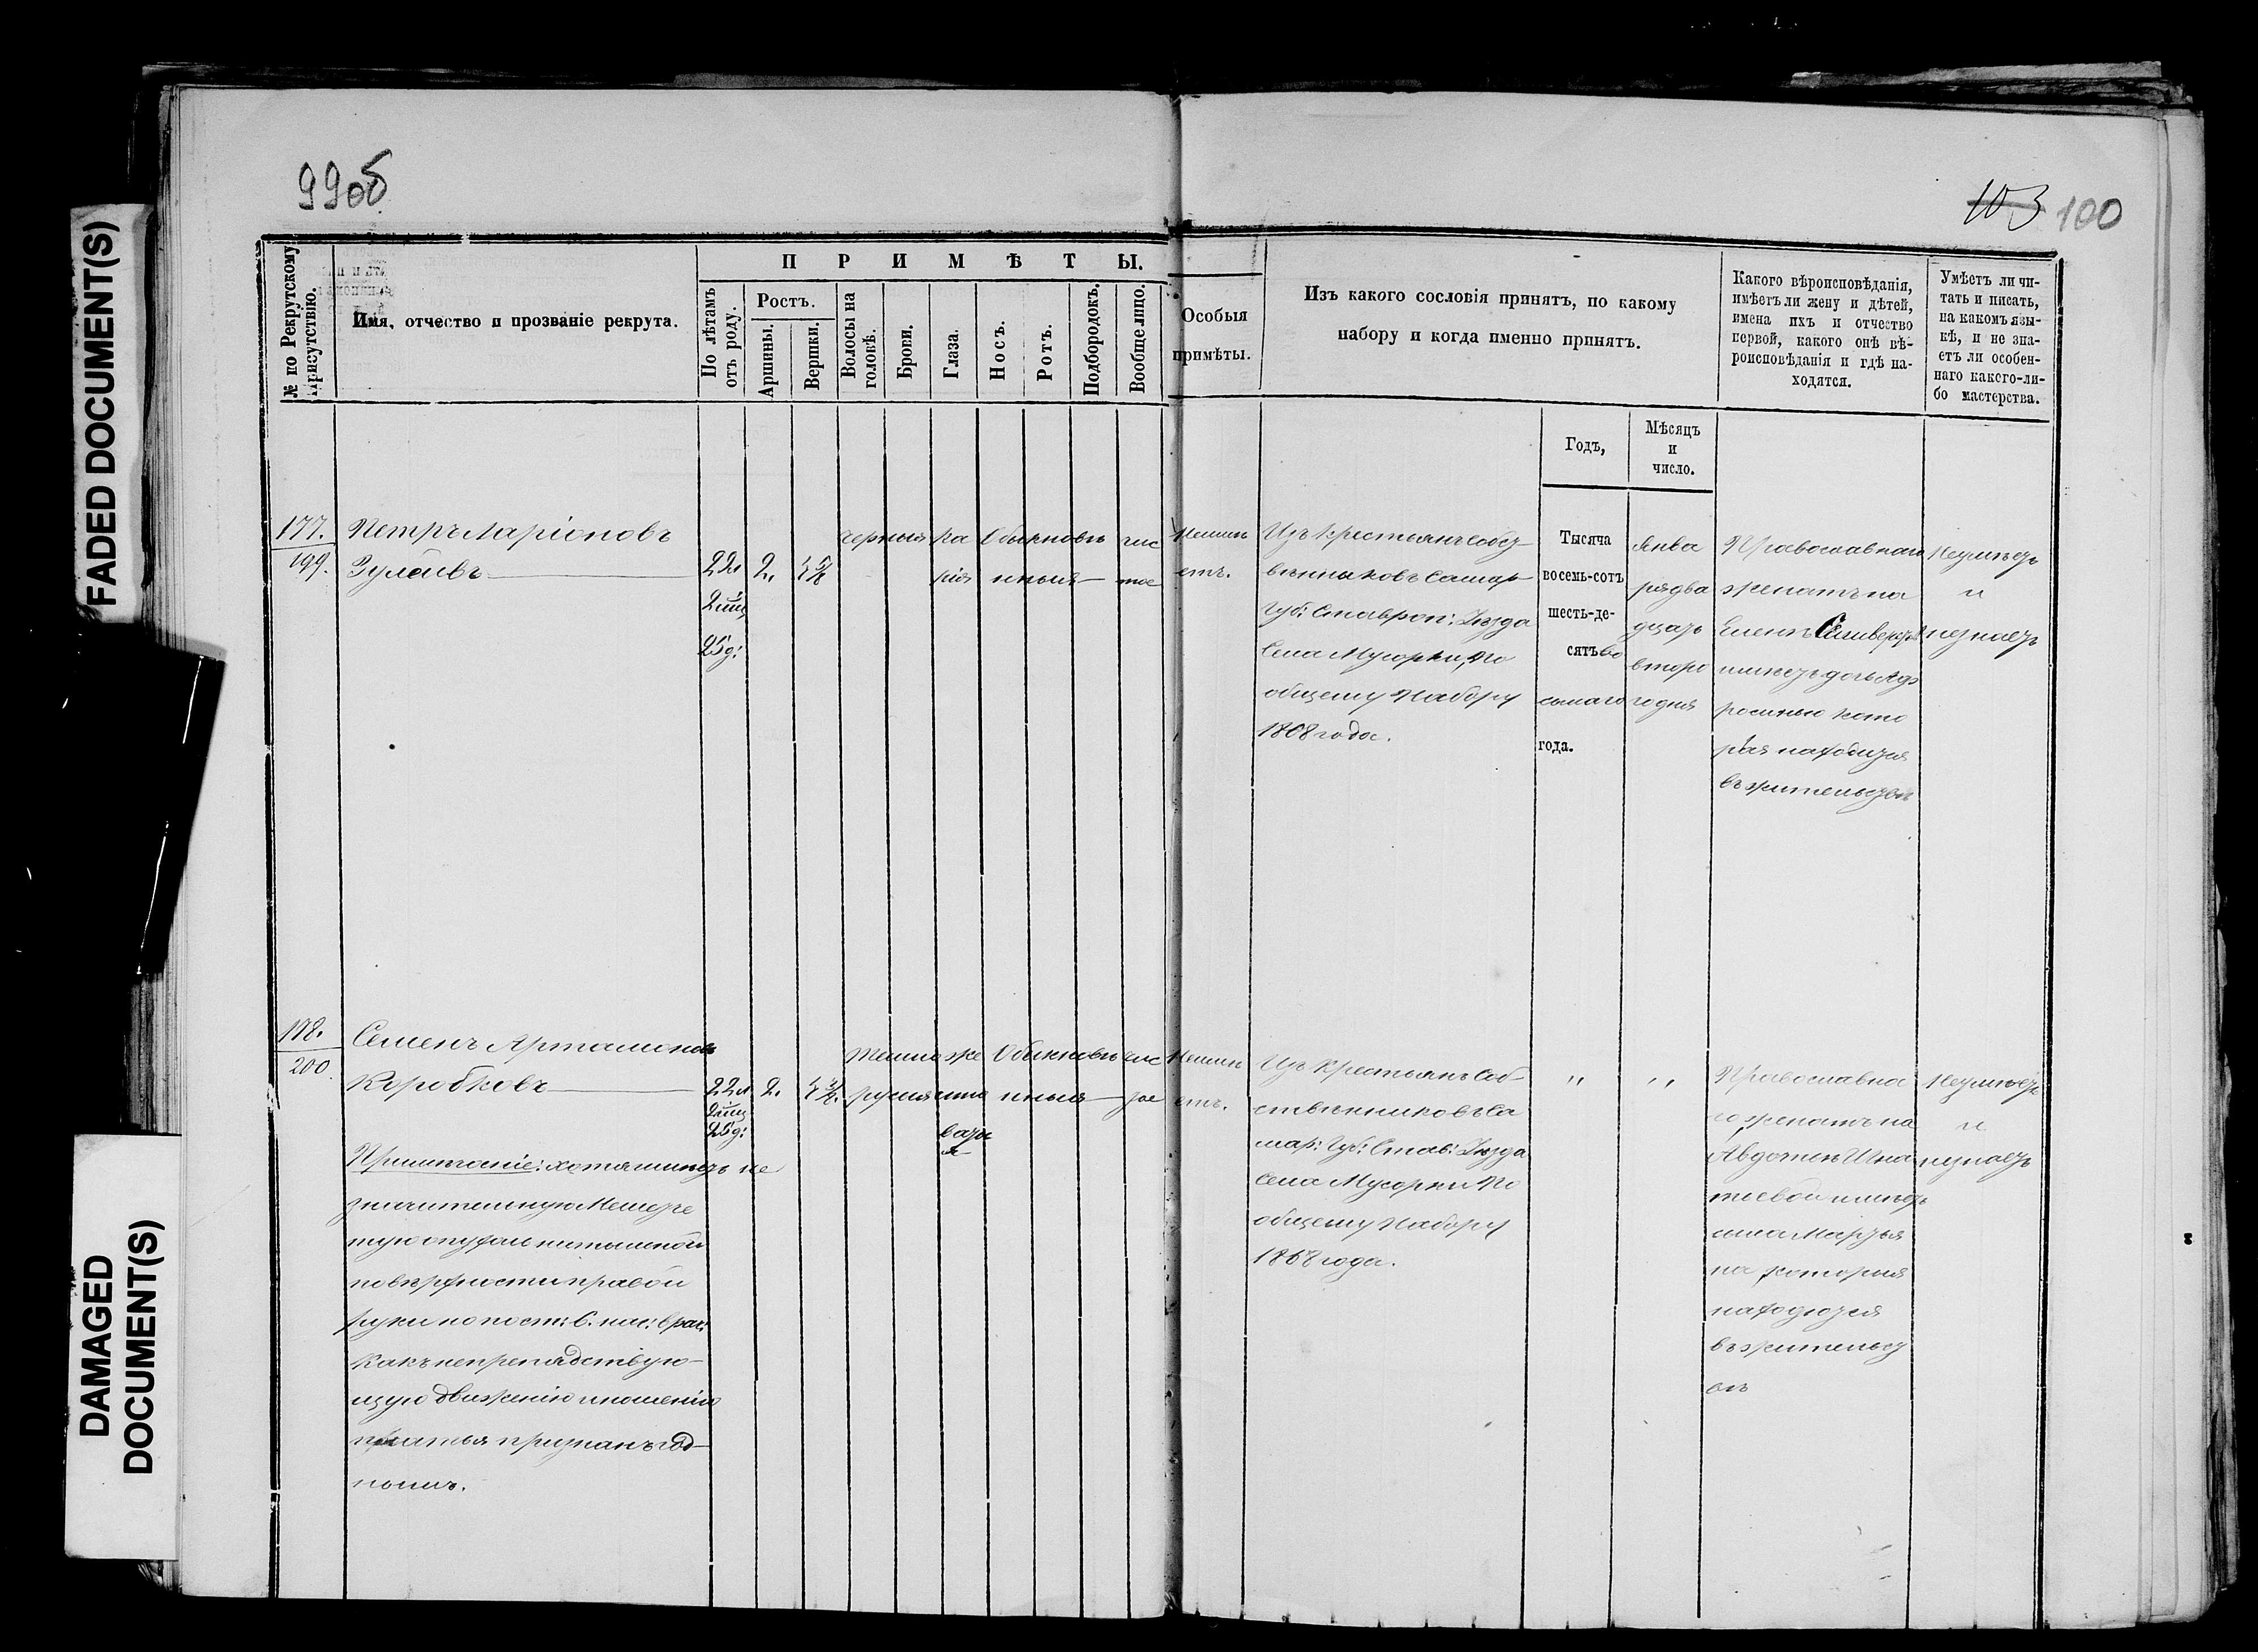 FADED DOCUMENT(S)
DAMAGED
DOCUMENT(S)
99об
103 100
№ по Рекрутскому
присутствію.
Имя, отчество и прозваніе рекрута.
ПРИМѢТЫ.
По лѣтамъ
отъ роду.
Ростъ.
Аршины.
Вершки.
Волосы на
головѣ.
Брови.
Глаза.
Носъ.
Ротъ.
Подбородокъ.
Вообще лицо.
Особыя
примѣты.
Изъ какого сословія принятъ, по какому
набору и когда именно принятъ.
Годъ,
Мѣсяцъ
и
число.
Какого вѣроисповѣданія,
имѣетъ ли жену и дѣтей,
имена ихъ и отчество
первой, какого онѣ вѣ-
роисповѣданія и гдѣ на-
ходятся.
Умѣетъ ли чи-
тать и писать,
на какомъ язы-
кѣ, и не зна-
етъ ли особен-
наго какого-ли-
бо мастерства.
177.
199.
Петръ Ларіоновъ
Гулеивъ
22л
2мц
25д:
2.
черныя
ка
рія
Обыкновѣ
нныя
чис
тое
Неимѣ
етъ.
Изъ Крестьянъ собст
вѣнниковъ Самар
Губ: Ставроп: Уѣзда
Села Мусорки, По
общему Набору
1868 года.
Тысяча
восемь-сотъ
шесть-де-
сятъ во
сьмаго
года.
Янва
ря два
дцать
второ
го дня
Православнаго
женатъ на
Еленѣ Селиверст
имѣетъ дочь Аф
росинью кото
рая находится
въ жительствѣ
Неумѣетъ
и
незнаетъ
178.
200.
Семенъ Артамоновъ
Коробковъ
22л
2мц
25д:
2.
темно
русыя
же
лто
ваты
я
Обыкновѣ
нныя
чис
тое
Неимѣ
етъ.
Примѣчаніе: хотя имѣетъ не
значительную
повѣрхности правой
руки по пост: б.
какъ непрепядствую-
щую движенію и ношенію
платья признанъ год-
нымъ.
Изъ Крестьянъ Соб
ствѣнниковъ Са
мар: Губ: Став: Уѣзда
Села Мусорки По
общему Набору
1868 года.
" "
Православна
го, женатъ на
Авдотьѣ Игна
тьевой имѣетъ
сына Мартья
на которыя
находются
въ жительст
вѣ
Неумѣетъ
и
незнаетъ